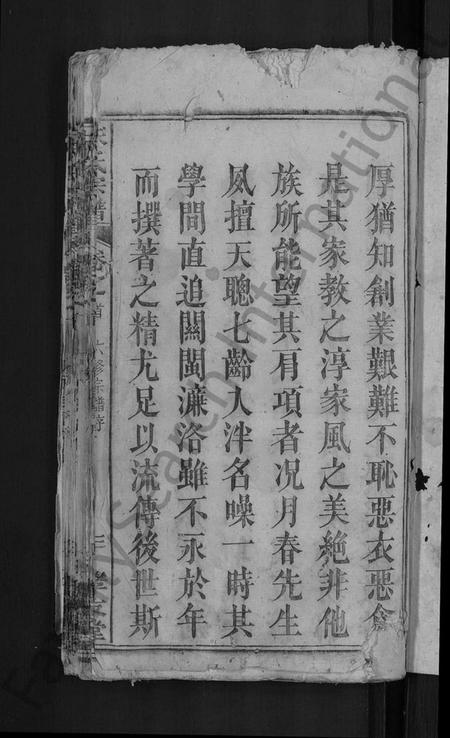 厚猶知創業艱難不恥惡衣惡食
是其家教之淳家風之美絕非他
族所能望其肩項者况月春先生
夙擅天聰七齡入泮名噪一時其
學問直追關閩濂洛雖不永於年
而撰著之精尤足以流傳後世斯
氏宗譜 卷之首 六修宗譜序
FamilySearch International